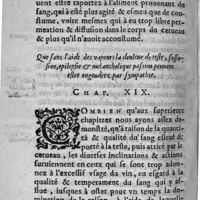 uent estre raportez à l'aliment prouenant du
sang, qui est plus agité & esmeu que de cou-
stume, voire mesmes qui à eu trop libre per-
meation & diffusion dans le corps du cerueau
& plus qu'il n'auoit accoustumé.
Que sans l'aide des vapeurs la douleur de teste, suffu-
sion, epilepsie & melancholique passion peuuent
estre engendrez par sympathie.
CHAP. XIX.
COMBIEN qu'aux superieurs
chapitres nous ayons assez de-
monstré, qu'à raison de la quanti-
té & qualité du sang eslourdé &
porté à la teste, puis attiré par le
cerueau, les diuerses inclinations & actions
faisulement en ceux qui se sont trop adon-
nez à l'excessif vsage du vin, eu esgard à la
qualité & temperament du sang qui y af-
fluë, iusques à oster pour vn temps la domi-
nation de la raison, à l'aide de laquelle